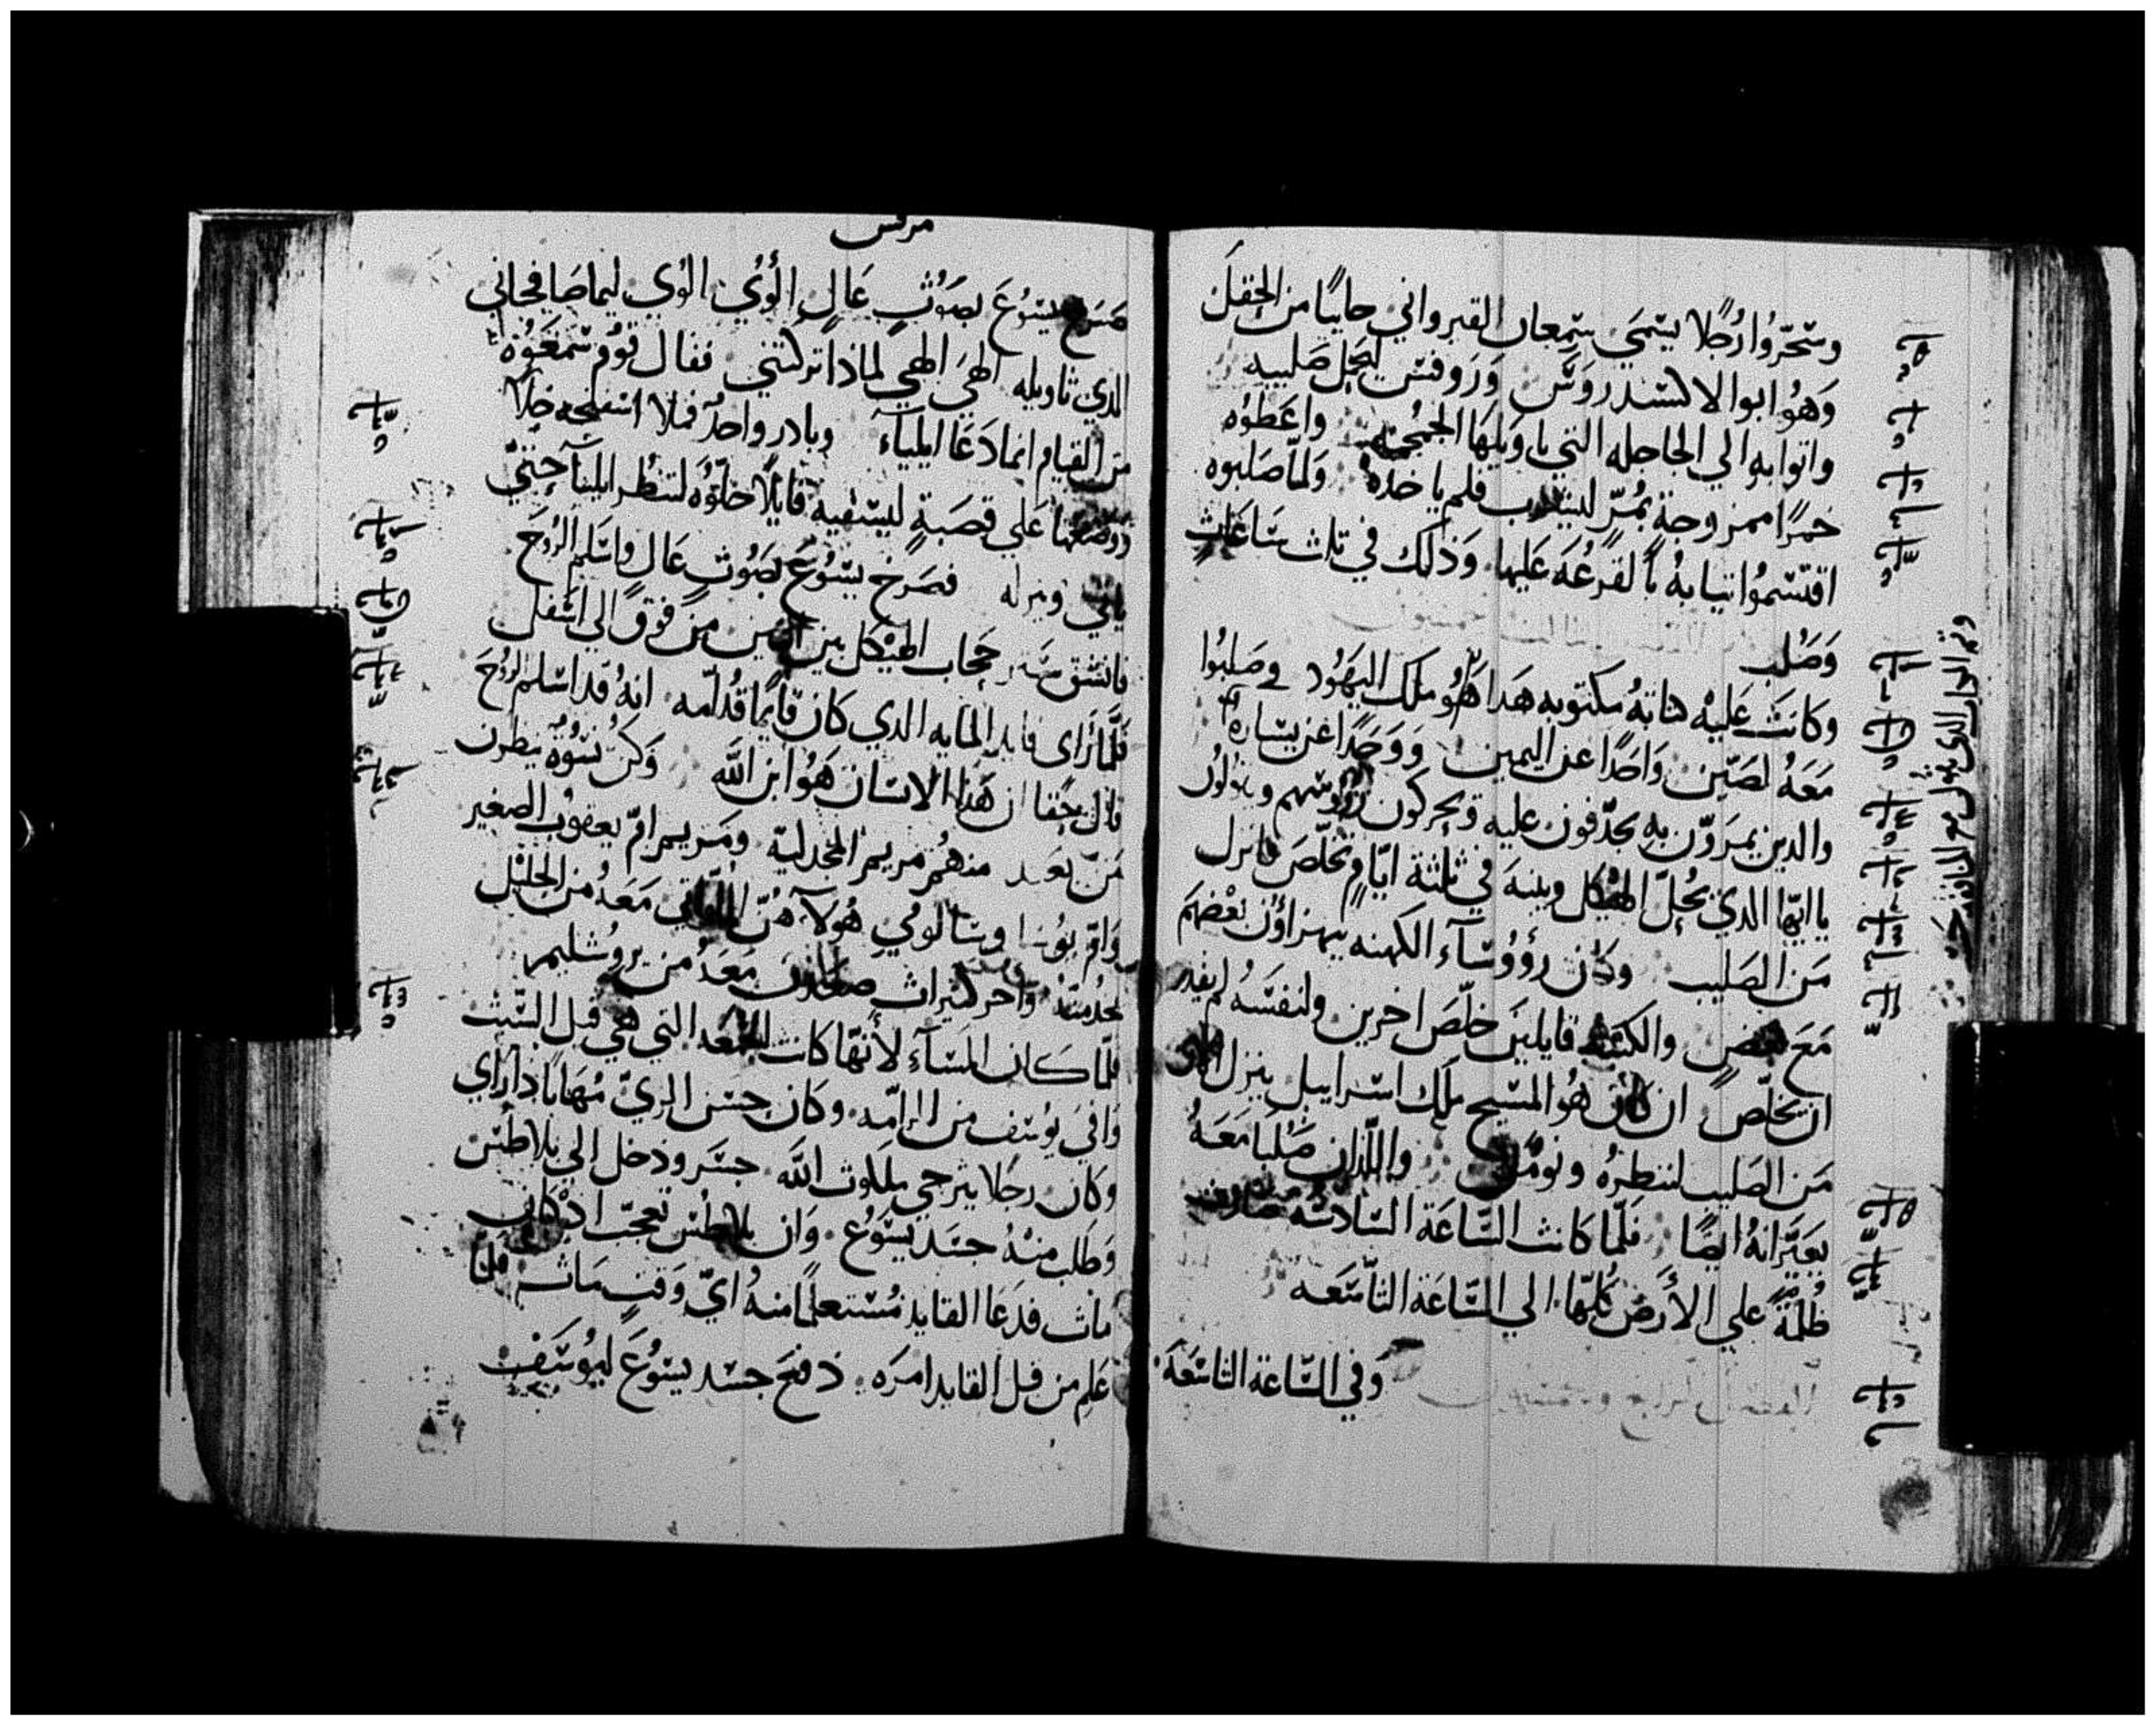 وسَخّروُا رُجُلا يسَمَي سَمعان القيرواني جايئًا من الحقل
وَهوُ ابوا الاكسَندروسَ وَروفسَ ليحمل صَليبه
واتوا به الي الجاجله التي تاويلهَا الجمجمه واعَطوُه
خمرًا ممزوجة بمُرّ ليشرب فلم ياخده ولمّا صَلبوه
اقتسَموُا ثيابهُ بالقرعُه عَليها وَذلك في ثلث سَاعَات
وَصُلب
وكانت عَليهْ مكتوبه هَدا هُو مَلك اليهَوُد وصَلبوُا
معَهُ لصّين واحدًا عن اليمين ووَاحدًا عن يسَاره
والدين يمرَوّن به يجدّفون عليه ويحركون روُوسَهم ويقولوُن
يا ايّها الدي يحُلّ الهيكل ويبنيه في ثلثة ايّامٍ تخلّصَ انزل
مَن الصَليب وكان رؤوُسَآء الكهنه يهزاؤُن بَعْضهم
مَعَ بعَضٍ والكتبه قايلينَ خلّصَ اخرين ولنفسَهُ لم يقدر
ان يخلّص ان كان هوُ المسَيح ملَك اسَراييل ينزل الان
مَن الصَليب لننظرهُ ونومَن واللّذان صُلبا مَعَهُ
يعَيّرانهُ ايضًا فَلمّا كانت السَّاعَة السَادسَه صارت
ظُلمَةٌ عَلي الأرَض كُلهّا الي السَّاعَة التّاسَعَه
وَفي السَّاعة التاسَعَة
مرقس
صَرخ يسَوُعَ بصَوُتٍ عَالٍ الوُيُ الوُي ليما صَافختاني
الدي تاويله الهيَ الهَي لماذا تركتني فقال قوُم سَمَعَوُه
من القيام انما دَعَا ايليآء وبادر واحدٌ فملا اسَفنجه خلا
ووضعَها عَلي قصَبة ليسَقيه قايلًا خلّوُه لننظر ايليآ حتيّ
ياتي وينزله فصَرخ يسَوُعَ بصَوُتٍ عَال واسَلم الرُوحَ
فانشق سَتر حجَاب الهَيكل بين اثنين من فوُق الي اسَفل
فلمّا رَاى قايد المايه الدي كان قايمًا قدُامّه انهُ قد اسَلم الرُوحَ
قال حقًا ان هَذا الانسَان هَوُ ابن الله وَكنّ نسَوُة ينظرن
مَن بعَد منهُم مريم المجدليّه ومَريم امّ يعقوب الصغير
وَامّ يوُسَا وسَالومي هُولآء هُنّ اللواتي مَعَهُ من الجليْل
يخدُمنهُ واخر كثيرات صعَدن مَعَهُ من يروُشليم
فلمّا كَان المسَآء لأنهّا كانت الجمُعَه التي هي قبل السَّبت
وَافيَ يوُسَف من الرامّه وكان حسَن الزيّ مُهَابًا ذا راي
وكان رجلا يترجي ملكوت الله جسَر ودخل الي بلاطسَ
وَطلب منْهُ جسَد يسَوُعَ وَان بلاطسَ تعَجبّ اذْ كان
مات فدَعَا القايد مُسَتعلمًا منهُ ايّ وَقتٍ مَات فلمّا
عَلم من قبل القايد امرَه دفعَ جسَد يسَوُعَ ليوُسَفْ